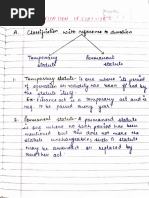 A. Classification with reference to duration
Temporary Permanent
statute statute
1. Temporary statute is one where its period
of operation or validity has been fixed by
the statute itself.
Ex: Finance act is a Temporary act and is
req. to be passed every year.
2. Permanent statute - A permanent statute is
one where no such period has been
mentioned but this does not makes the
statute unchangeable, such a statute
may be amended or replaced by
another act.